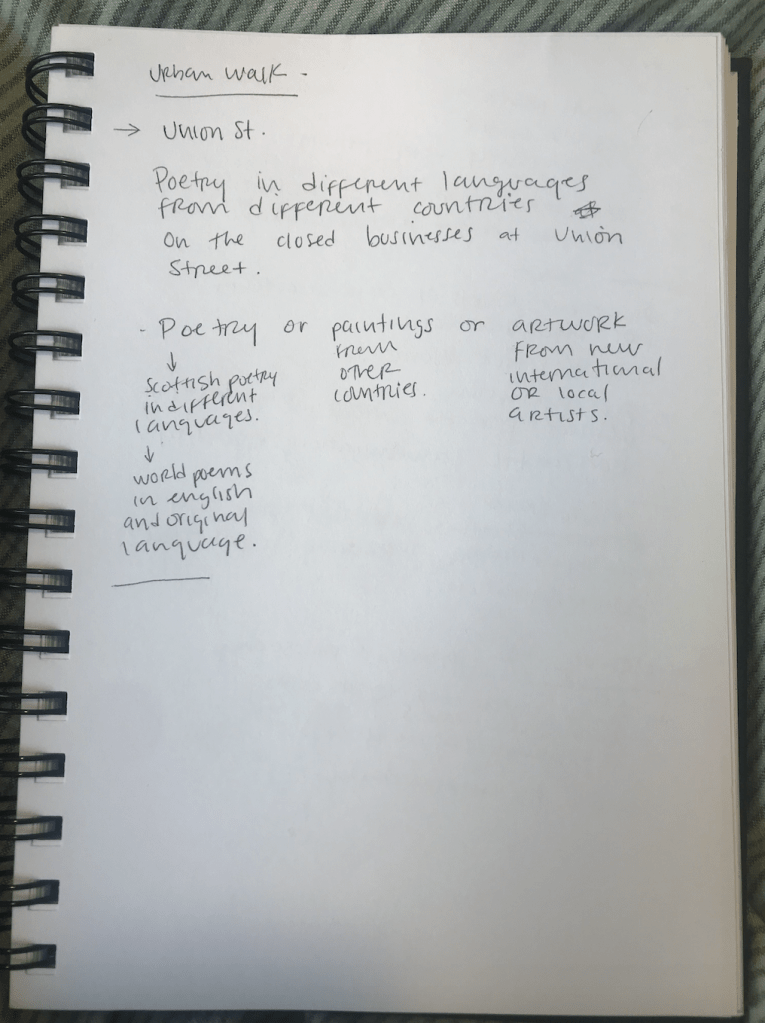 Urban walk -
→ Union St.
Poetry in different languages
from different countries
on the closed businesses at Union
Street.
- Poetry or paintings or artwork
↓
Scottish poetry
in different
languages.
↓
world poems
in english
and original
language.
from
other
countries.
from new
international
or local
artists.